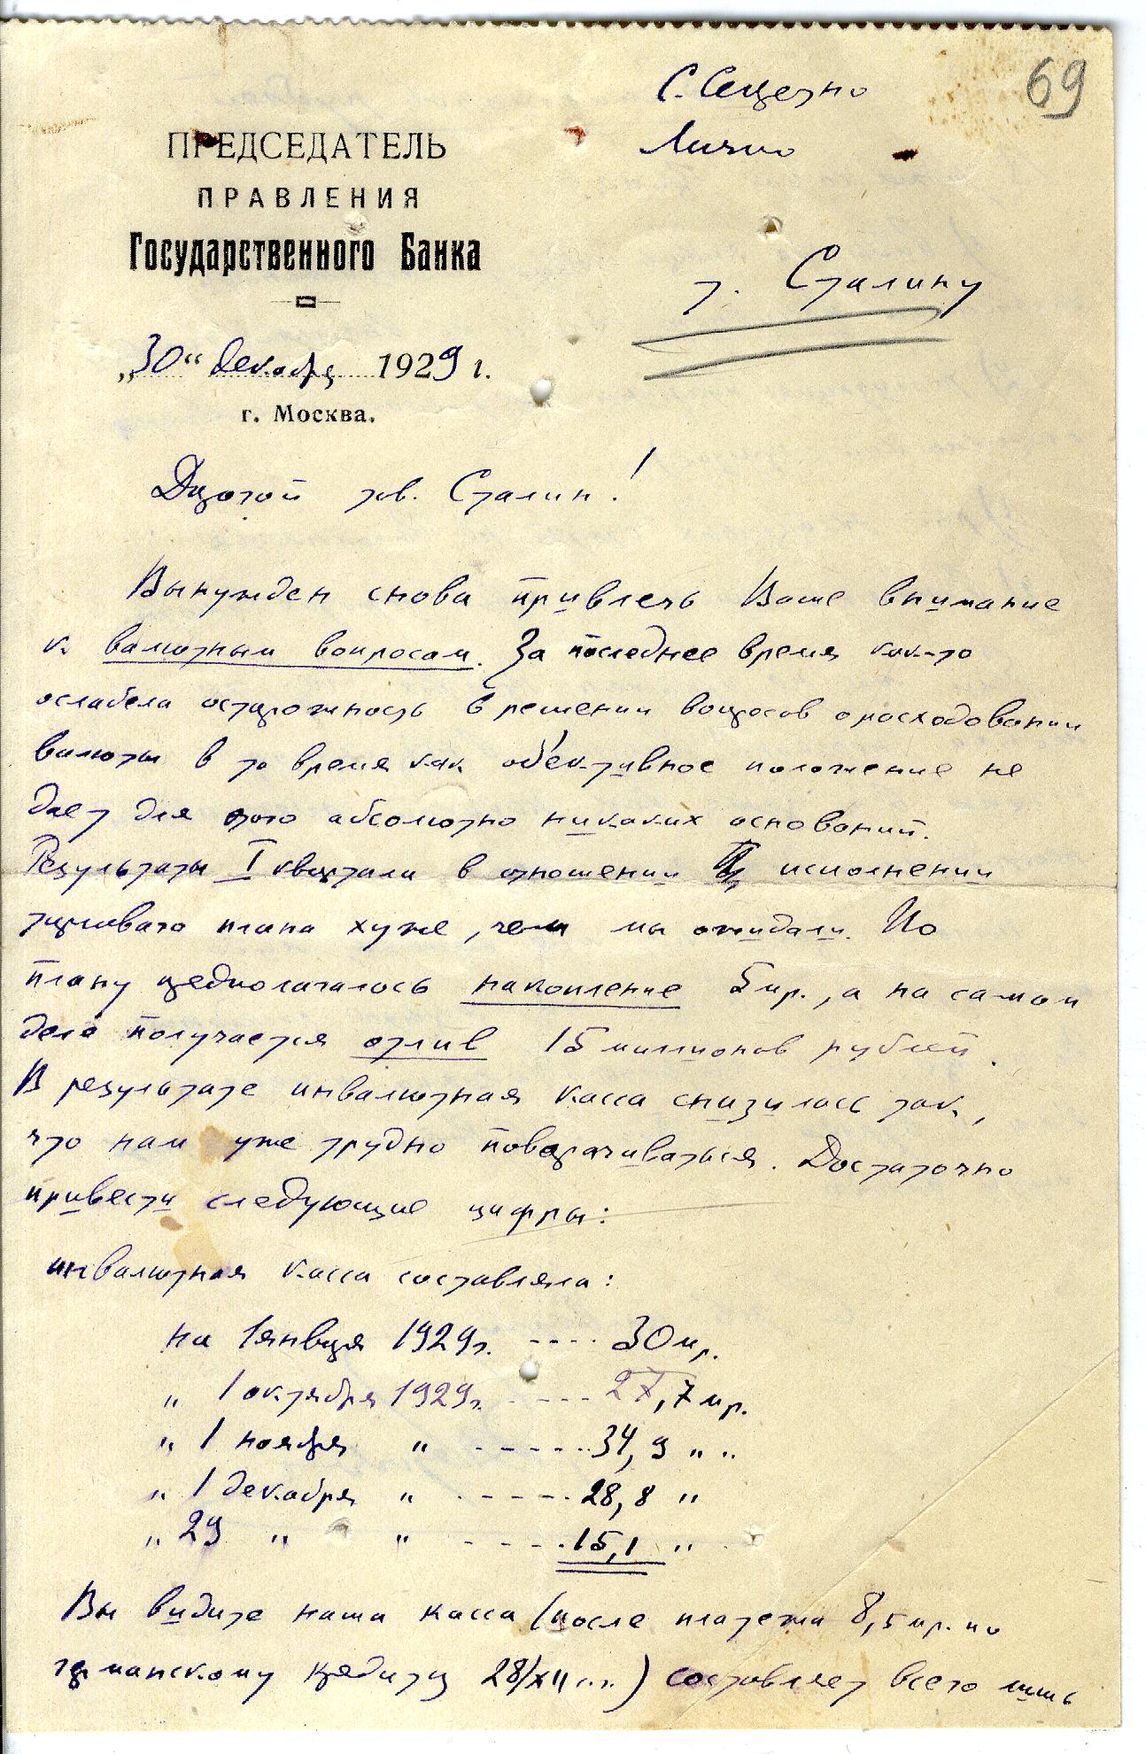 69
С. Секретно
Лично
ПРЕДСЕДАТЕЛЬ
ПРАВЛЕНИЯ
Государственного Банка
т. Сталину
„30“ декабря 1929 г.
г. Москва.
Дорогой тов. Сталин!
Вынужден снова привлечь Ваше внимание
к валютным вопросам. За последнее время как-то
ослабела осторожность в решении вопросов о расходовании
валюты в то время как об'ективное положение не
дает для этого абсолютно никаких оснований.
Результаты I квартала в отношении исполнении
торгового плана хуже, чем мы ожидали. По
плану предполагалось накопление 5 мр., а на самом
деле получается отлив 15 миллионов рублей.
В результате инвалютная касса снизилась так,
что нам уже трудно поворачиваться. Достаточно
привести следующие цифры:
инвалютная касса составляла:
на 1 января 1929 г. ---- 30 мр.
„ 1 октября 1929 г. ---- 27,7 мр.
„ 1 ноября „ ------ 34,9 „ „
„ 1 декабря „ ----- 28,8 „
„ 29 „ „ ---- 15,1 „
Вы видите наша касса (после платежа 8,5 мр. по
германскому кредиту 28/XII с.г.) составляет всего лишь